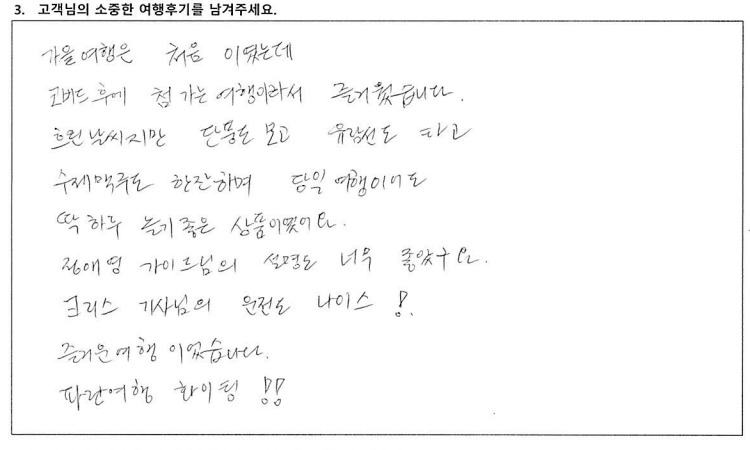 3. 고객님의 소중한 여행후기를 남겨주세요.
가을여행은 처음 이였는데
코비드 후에 첨 가는 여행이라서 즐거웠습니다.
흐린날씨지만 단풍도 보고 유람선도 타고
수제맥주도 한잔하며 당일 여행이어도
딱 하루 놀기 좋은 상품이였어요.
정애영 가이드님의 설명도 너무 좋았구요.
크리스 기사님의 운전도 나이스 !.
즐거운여행 이었습니다.
파란여행 화이팅 !!